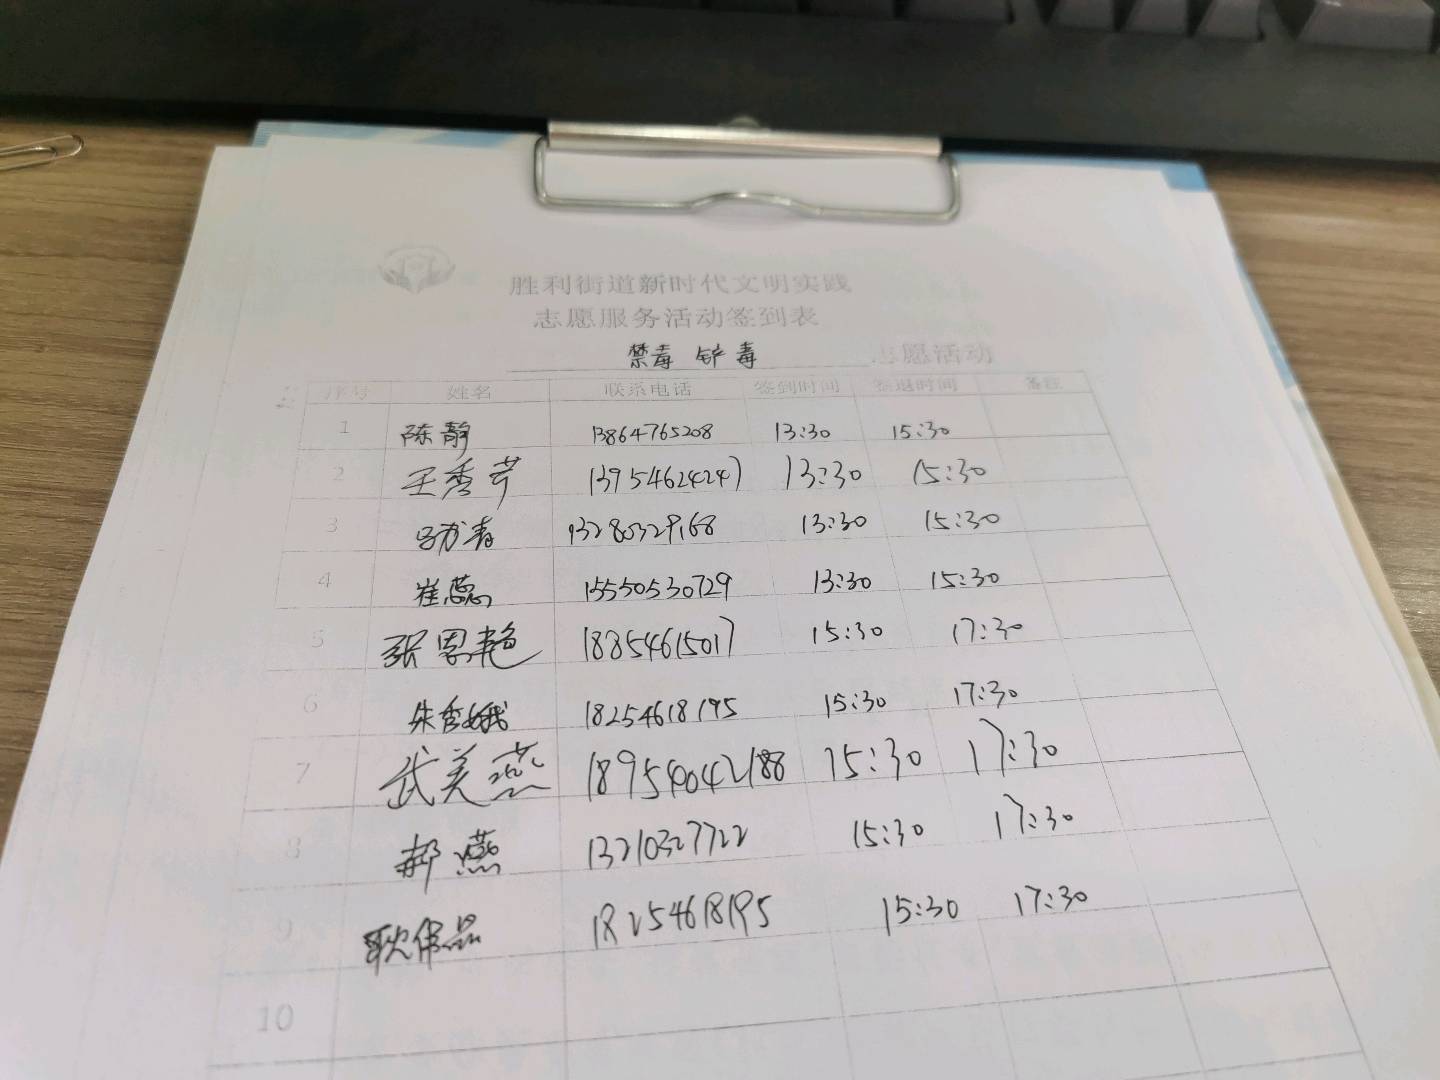 胜利街道新时代文明实践
志愿服务活动签到表
禁毒 铲毒 志愿活动
序号 姓名 联系电话 签到时间 签退时间 备注
1 陈静 13864765208 13:30 15:30
2 王秀芹 13954624247 13:30 15:30
3 13280329168 13:30 15:30
4 崔蕊 15550530729 13:30 15:30
5 张恩艳 18854615017 15:30 17:30
6 朱秀娥 18254618195 15:30 17:30
7 武美燕 18954042188 15:30 17:30
8 郝燕 13210327722 15:30 17:30
9 耿伟品 18254618195 15:30 17:30
10